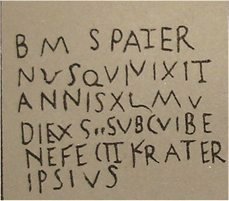 B M S PATER
NVSQVIVIXIT
ANNISXLMV
DIEXS,,SVBCVIBE
NEFECIIFRATER
IPSIVS